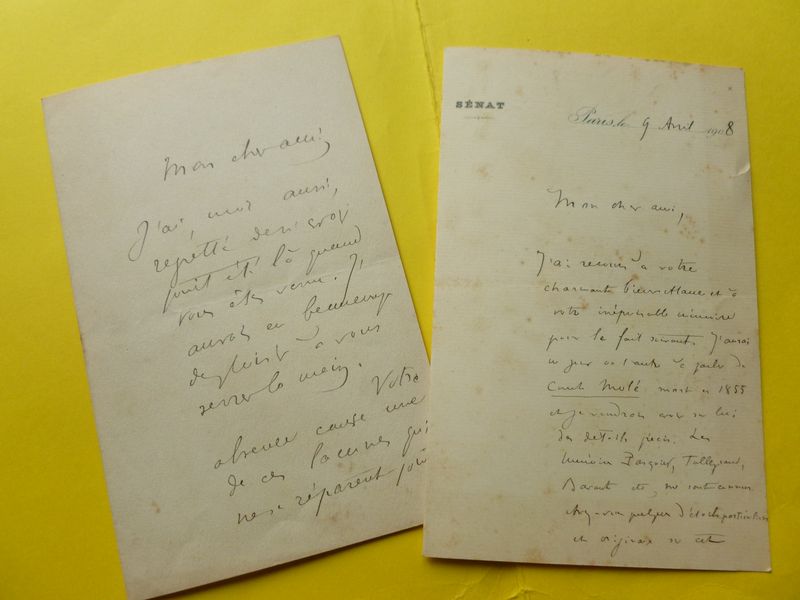 Mon cher ami,
J'ai, moi aussi,
regretté de n'avoir
point été là quand
vous êtes venu. J'
aurais eu beaucoup
de plaisir à vous
serrer la main.
absence cause Votre
une
de ces lacunes qui
ne se réparent point
SÉNAT
Paris, le 9 Avril 1908
Mon cher ami,
J'ai recours à votre
charmante bienveillance et à
votre inépuisable mémoire
pour le fait suivant. J'aurai
un jour ou l'autre à parler du
Comte Molé, mort en 1855
et je voudrais avoir sur lui
des détails précis. Les
Pasquier, Talleyrand,
Barante etc, me sont connus
Avez-vous quelque
et original sur cet